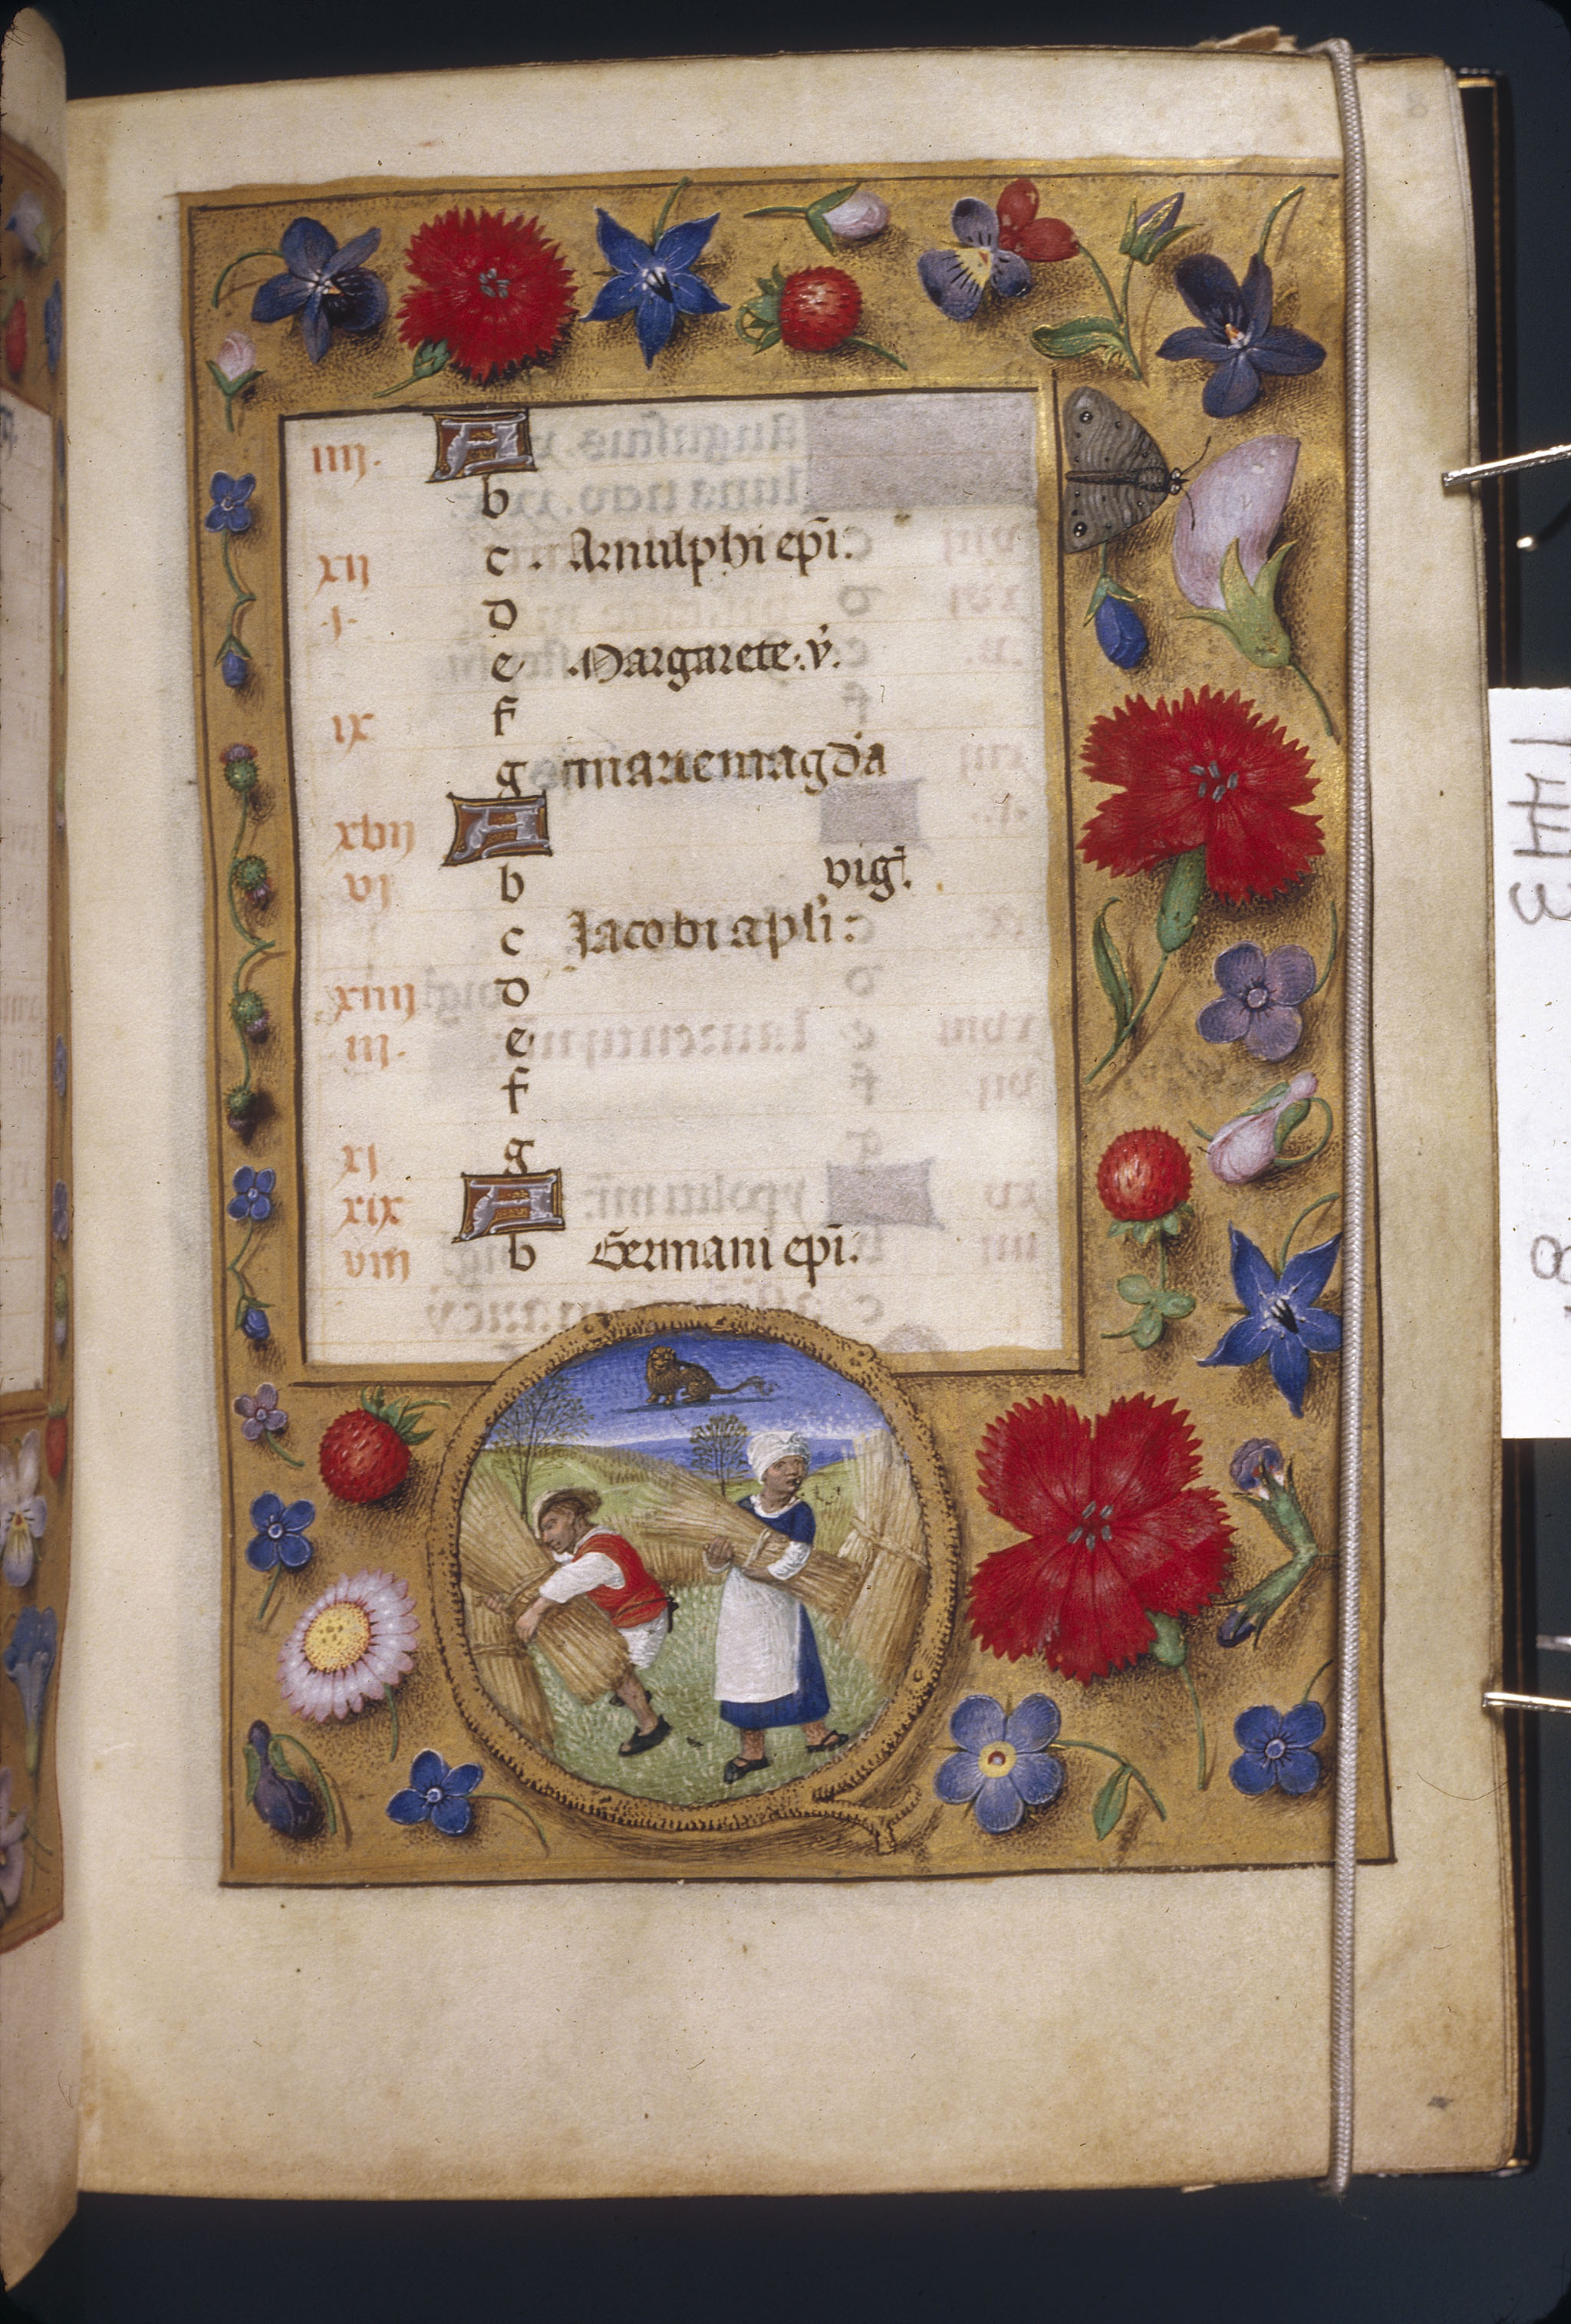 iiij. A
b
xij c . Arnulphi epi.
.j. d
e Margarete. v.
ix f
g marie magda
xvij A
vj b vig.
c Jacobi apli:
xiiij d
iij. e
f
xj g
xix A
viij b Germani epi.
1443
8